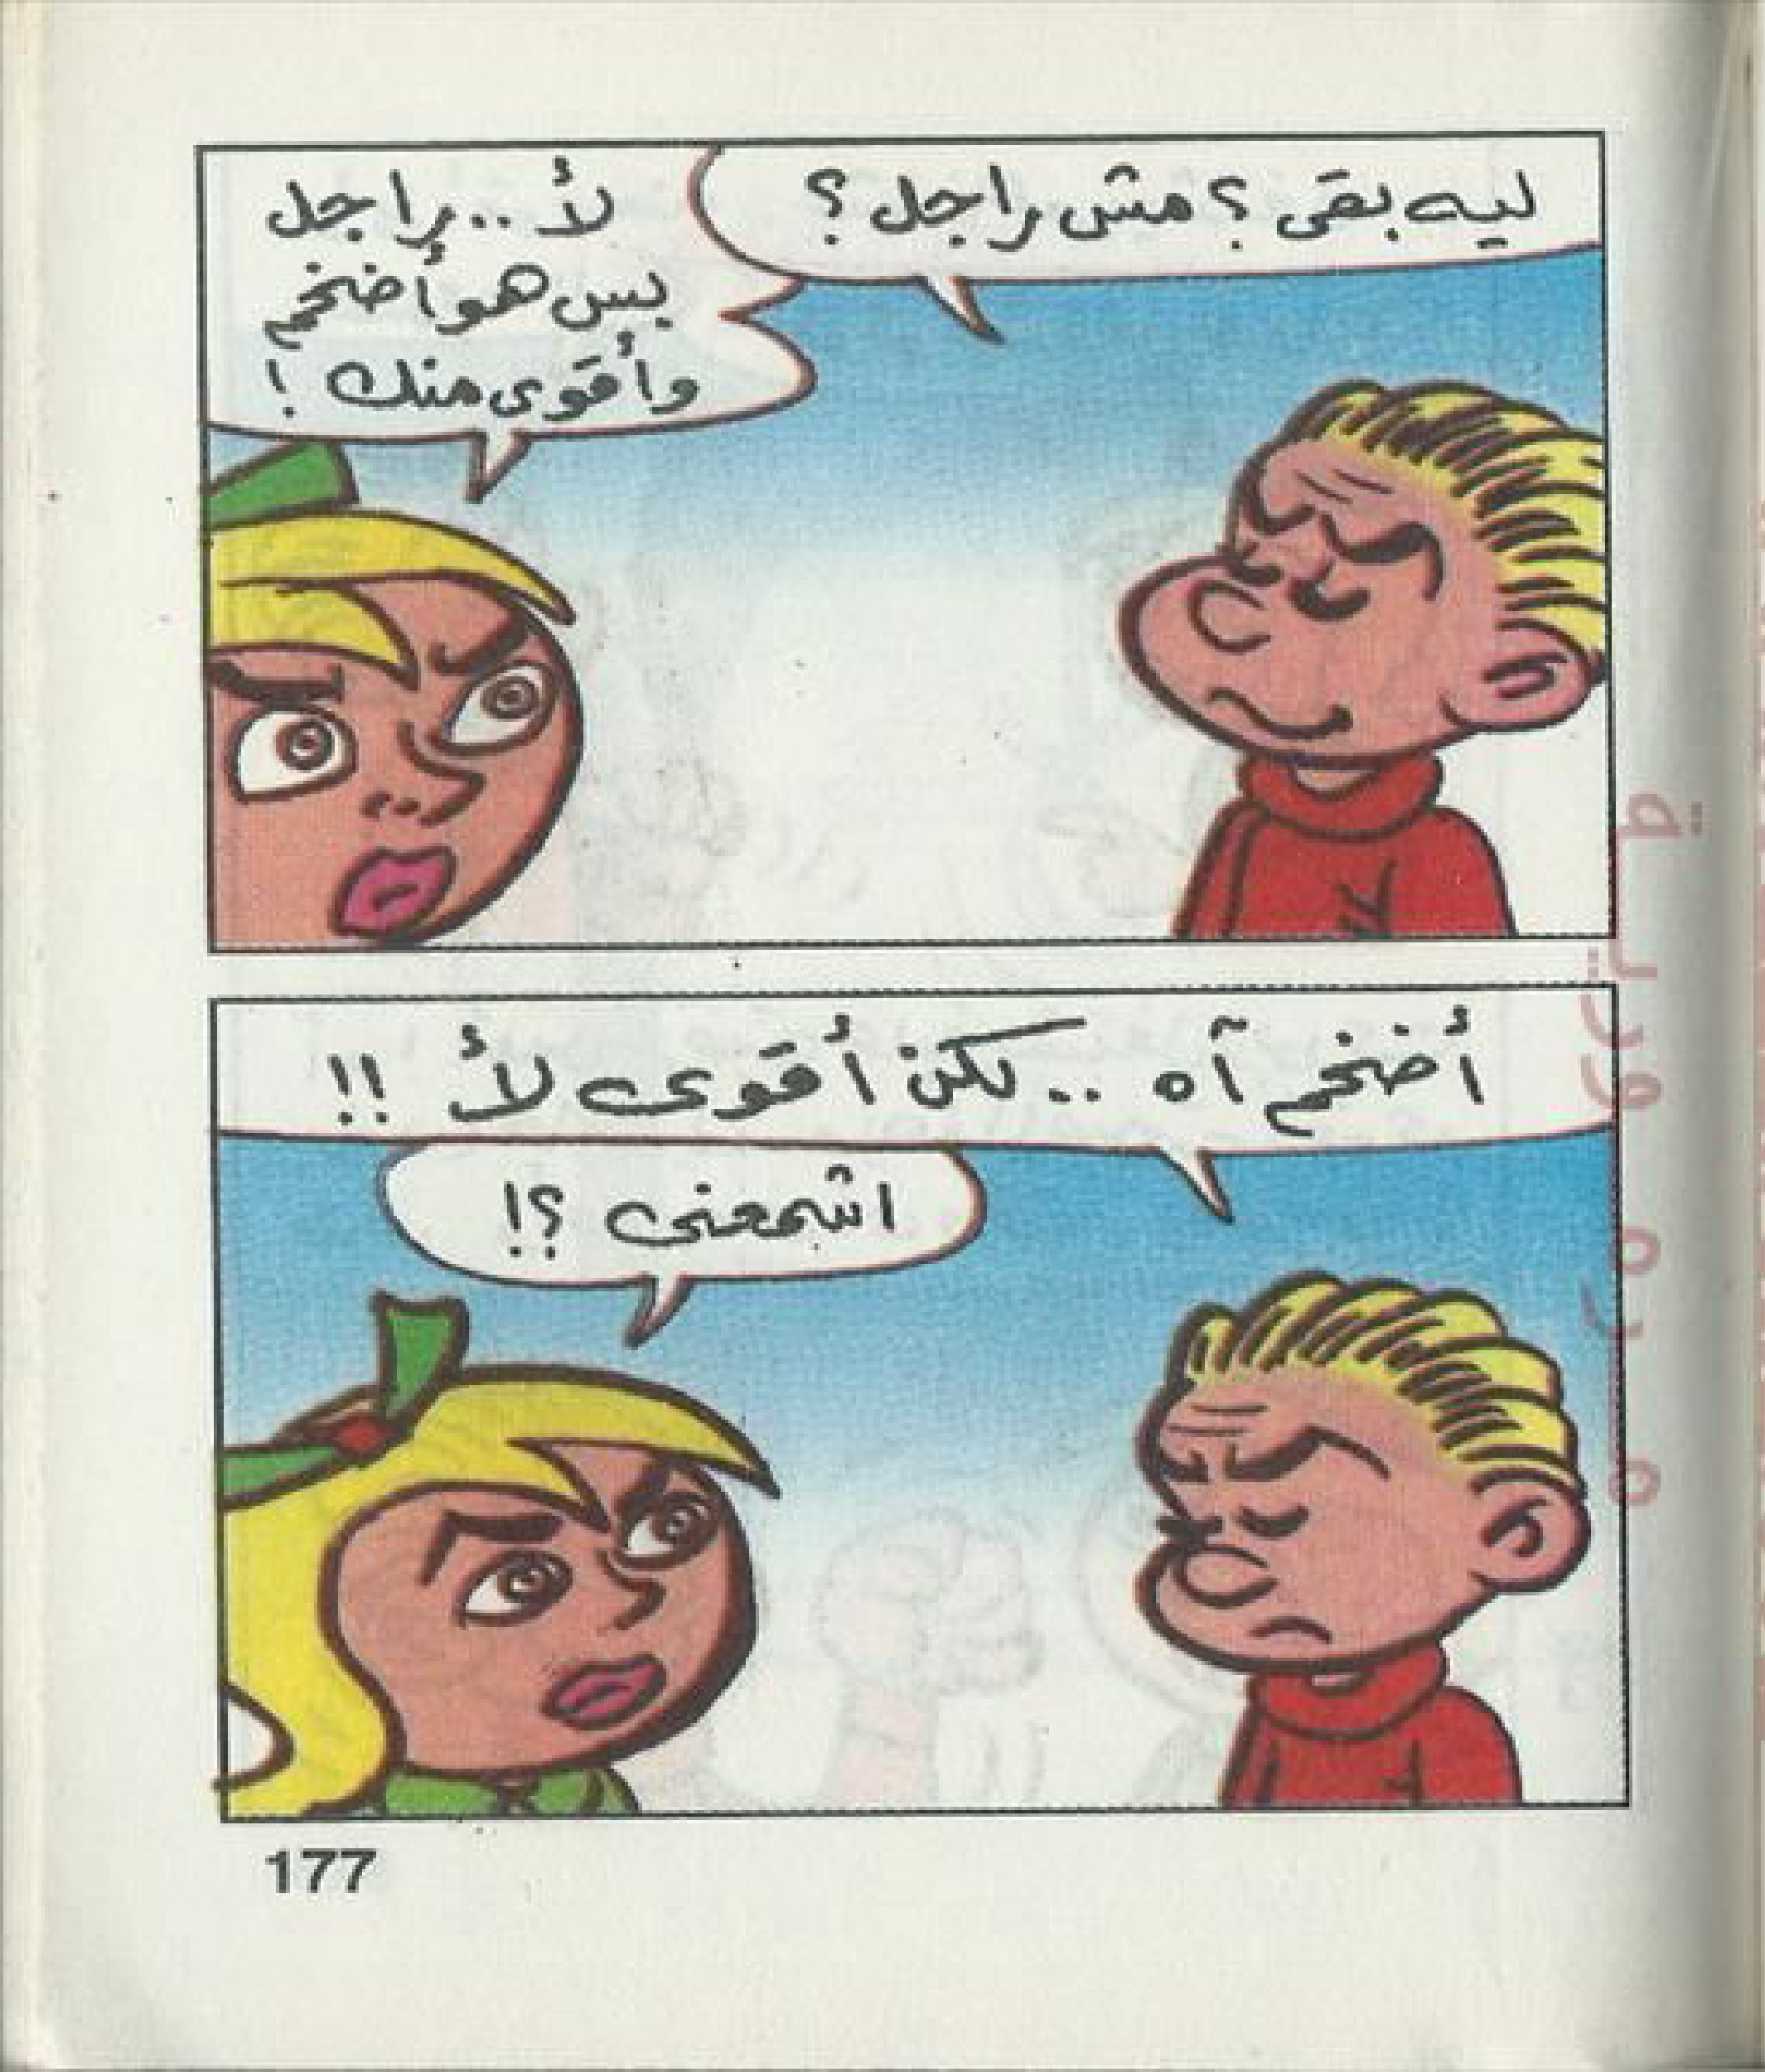 ليه بقى ؟ مش راجل ؟
لأ .. راجل
بس هو أضخم
وأقوى منك !
أضخم آه .. لكن أقوى لأ !!
اشمعنى ؟!
177